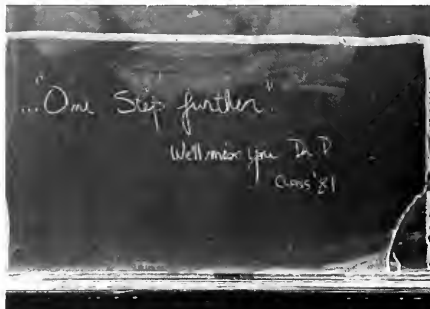 ..."One Step further".
We'll miss you Dr. P
Class '81